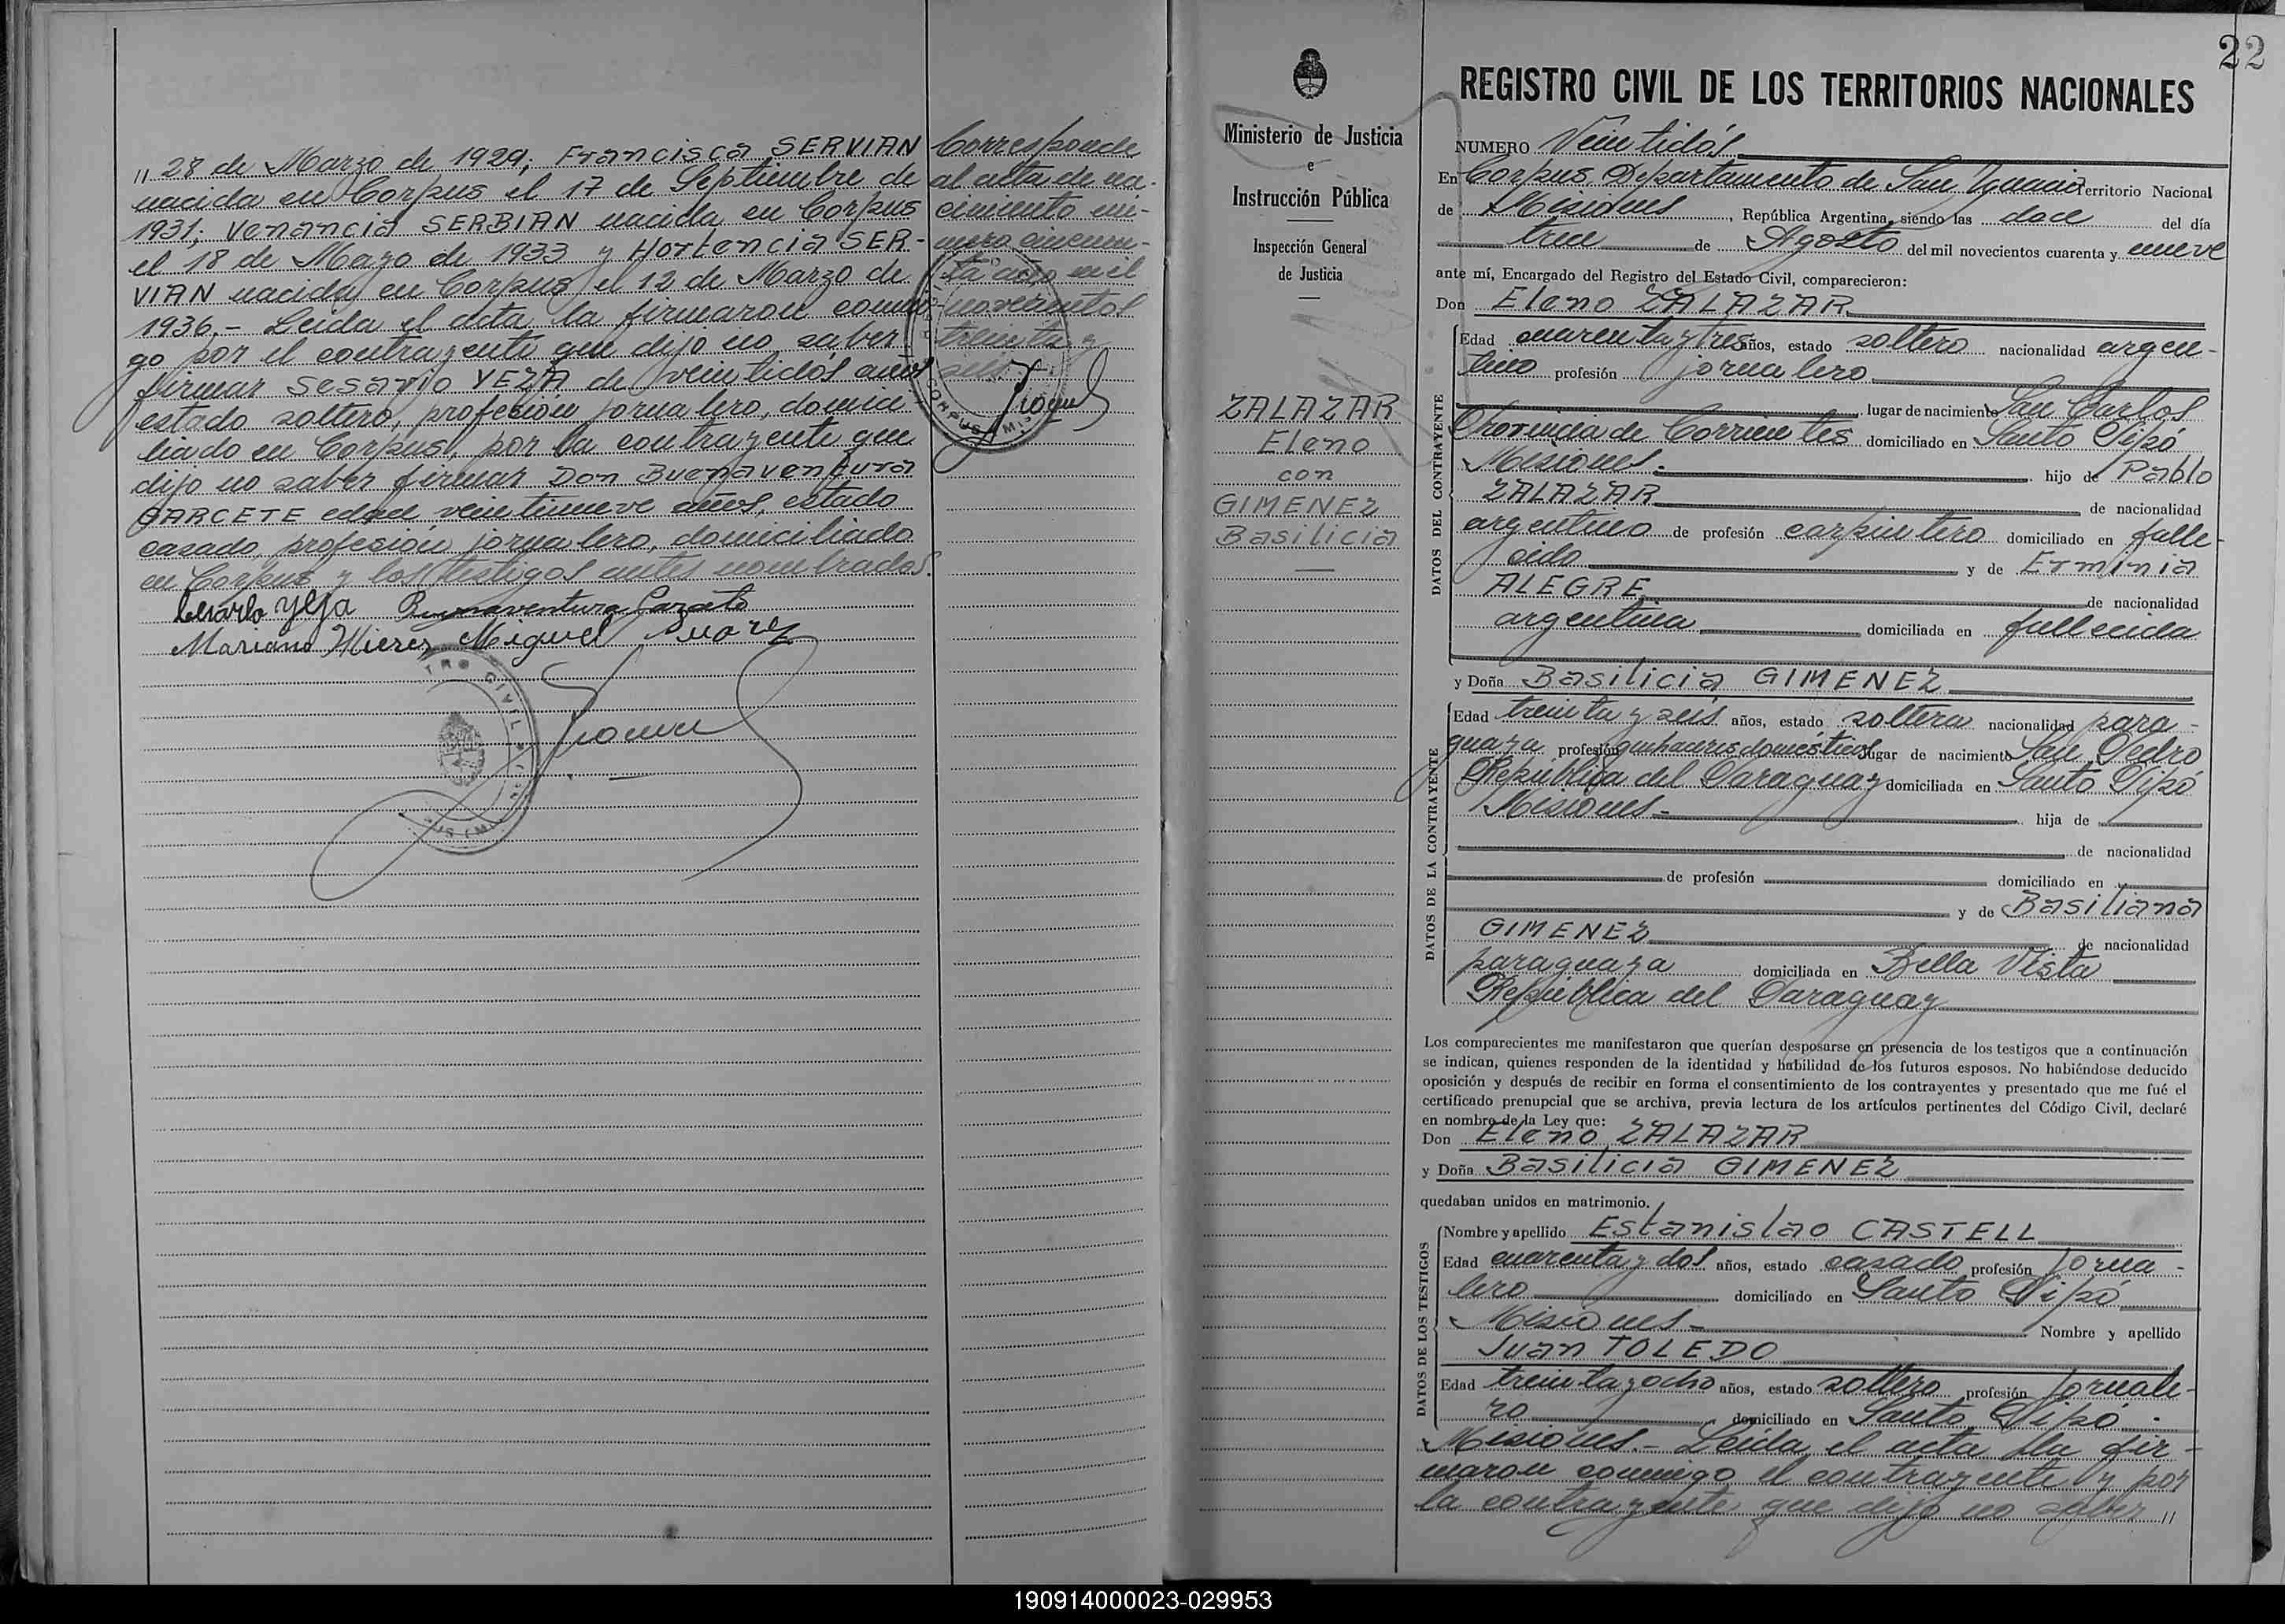 " 28 de Marzo de 1929; Francisca SERVIAN
nacida en Corpus el 17 de Septiembre de
1931; Venancia SERBIAN nacida en Corpus
el 18 de Mayo de 1933 y Hortencia SER-
VIAN nacida en Corpus el 12 de Marzo de
1936.- Leida el acta la firmaron conmi-
go por el contrayente que dijo no saber
firmar Sesario YEZA de veintidós años
estado soltero, profesión jornalero, domici
liado en Corpus, por la contrayente que
dijo no saber firmar Don Buenaventura
GARCETE edad veintinueve años, estado
casado, profesión jornalero, domiciliado
en Corpus y los testigos antes nombrados.
Mariano Mierez Miguel Suarez
Corresponde
al acta de na-
cimiento nú-
mero cincuen-
ta año mil
novecientos
treinta y
seis
Ministerio de Justicia
e
Instrucción Pública
Inspección General
de Justicia
ZALAZAR
Eleno
con
GIMENEZ
Basilicia
22
REGISTRO CIVIL DE LOS TERRITORIOS NACIONALES
NUMERO Veintidós
En Corpus, Departamento de San Ignacio Territorio Nacional
de Misiones, República Argentina, siendo las doce del día
trece de Agosto del mil novecientos cuarenta y nueve
ante mí, Encargado del Registro del Estado Civil, comparecieron:
Don Eleno ZALAZAR
DATOS DEL CONTRAYENTE
Edad cuarenta y tres años, estado soltero nacionalidad argen-
tino profesión jornalero
lugar de nacimiento San Carlos
Provincia de Corrientes domiciliado en Santo Pipó
Misiones.- hijo de Pablo
ZALAZAR de nacionalidad
argentino de profesión carpintero domiciliado en falle-
cido y de Erminia
ALEGRE de nacionalidad
argentina domiciliada en fallecida
y Doña Basilicia GIMENEZ
DATOS DE LA CONTRAYENTE
Edad treinta y seis años, estado soltera nacionalidad para-
guaya profesión quehaceres domésticos lugar de nacimiento San Pedro
República del Paraguay domiciliada en Santo Pipó
Misiones.- hija de
de nacionalidad
de profesión domiciliado en
y de Basiliana
GIMENEZ de nacionalidad
paraguaya domiciliada en Bella Vista
República del Paraguay
Los comparecientes me manifestaron que querían desposarse en presencia de los testigos que a continuación
se indican, quienes responden de la identidad y habilidad de los futuros esposos. No habiéndose deducido
oposición y después de recibir en forma el consentimiento de los contrayentes y presentado que me fué el
certificado prenupcial que se archiva, previa lectura de los artículos pertinentes del Código Civil, declaré
en nombre de la Ley que:
Don Eleno ZALAZAR
y Doña Basilicia GIMENEZ
quedaban unidos en matrimonio.
DATOS DE LOS TESTIGOS
Nombre y apellido Estanislao CASTELL
Edad cuarenta y dos años, estado casado profesión jorna-
lero domiciliado en Santo Pipó
Misiones.- Nombre y apellido
Juan TOLEDO
Edad treinta y ocho años, estado soltero profesión jornale-
ro domiciliado en Santo Pipó
Misiones.- Leida el acta la fir-
maron conmigo el contrayente y por
la contrayente que dijo no saber "
190914000023-029953